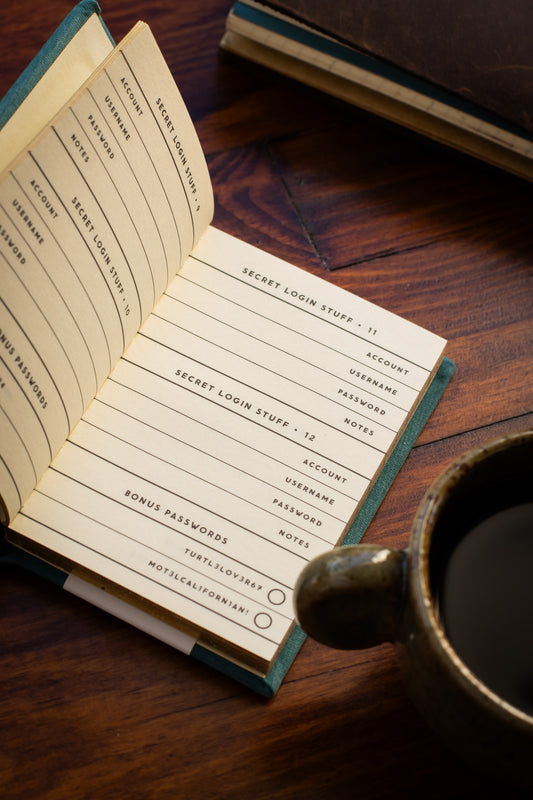 SECRET LOGIN STUFF • 9
ACCOUNT
USERNAME
PASSWORD
NOTES
SECRET LOGIN STUFF • 10
ACCOUNT
USERNAME
PASSWORD
BONUS PASSWORDS
SECRET LOGIN STUFF • 11
ACCOUNT
USERNAME
PASSWORD
NOTES
SECRET LOGIN STUFF • 12
ACCOUNT
USERNAME
PASSWORD
NOTES
BONUS PASSWORDS
TURTL3LOV3R67
MOT3LCAL1FORN1AN!